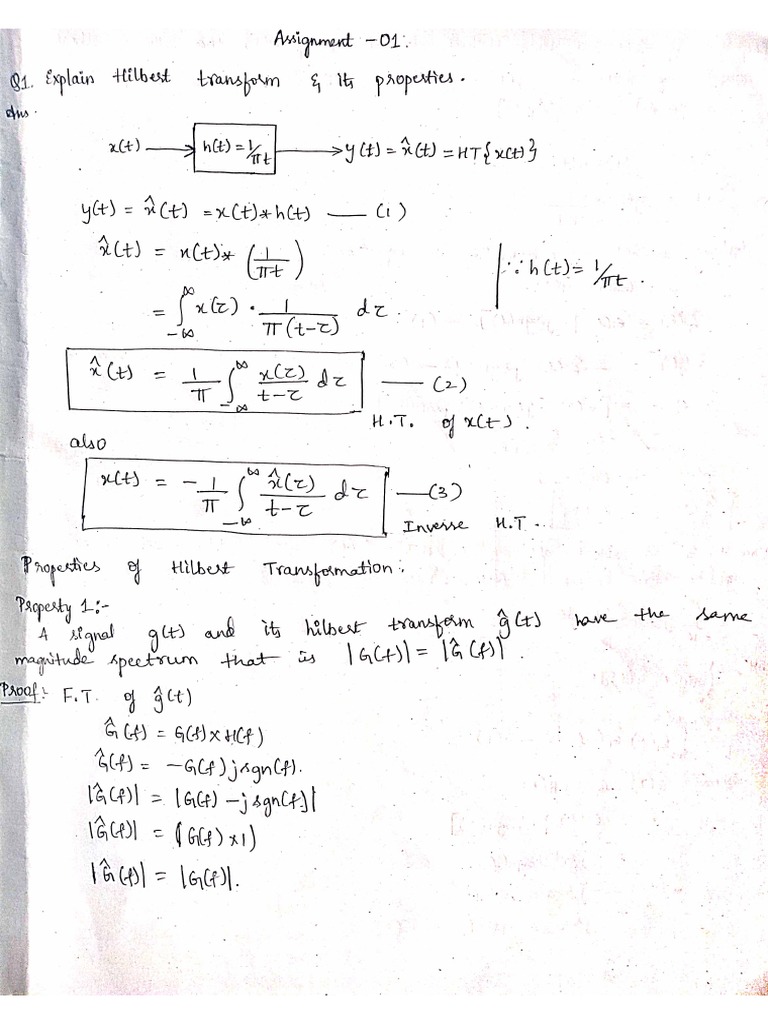 Assignment -01:
Q1. Explain Hilbert transform & its properties.
Ans.
x(t) → h(t) = 1/πt → y(t) = x̂(t) = HT{x(t)}
y(t) = x̂(t) = x(t)*h(t) — (1)
x̂(t) = x(t)* (1/πt) | ∵ h(t) = 1/πt.
= ∫_{-∞}^{∞} x(τ) · 1/π(t-τ) dτ.
x̂(t) = 1/π ∫_{-∞}^{∞} x(τ)/t-τ dτ — (2)
H.T. of x(t).
also
x(t) = -1/π ∫_{-∞}^{∞} x̂(τ)/t-τ dτ — (3)
Inverse H.T.
Properties of Hilbert Transformation:
Property 1:-
A signal g(t) and its hilbert transform ĝ(t) have the same
magnitude spectrum that is |G(f)| = |Ĝ(f)|.
Proof:- F.T. of ĝ(t)
Ĝ(f) = G(f) x H(f)
Ĝ(f) = -G(f) j sgn(f).
|Ĝ(f)| = |G(f) -j sgn(f)|
|Ĝ(f)| = (G(f) x 1)
|Ĝ(f)| = |G(f)|.